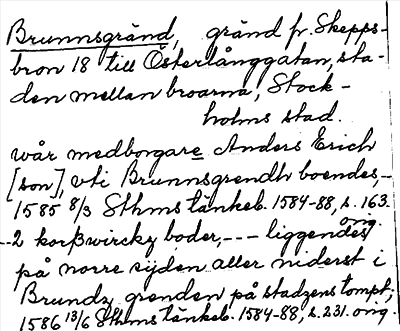 Brunnsgränd, gränd fr. Skepps-
bron 18 till Österlånggatan, sta-
den mellan broarna, Stock-
holms stad.
wår medborgare Anders Erich
[son], vti Brunnsgrendh boendes,-
1585 8/3 Sthms tänkeb. 1584-88, s. 163.
--2 korßwircky boder,--- liggendes
på norre sijden aller niderst i
Brundz grenden på stadzens tompt;
1586 13/6 Sthms tänkeb. 1584-88, s. 231. ong.